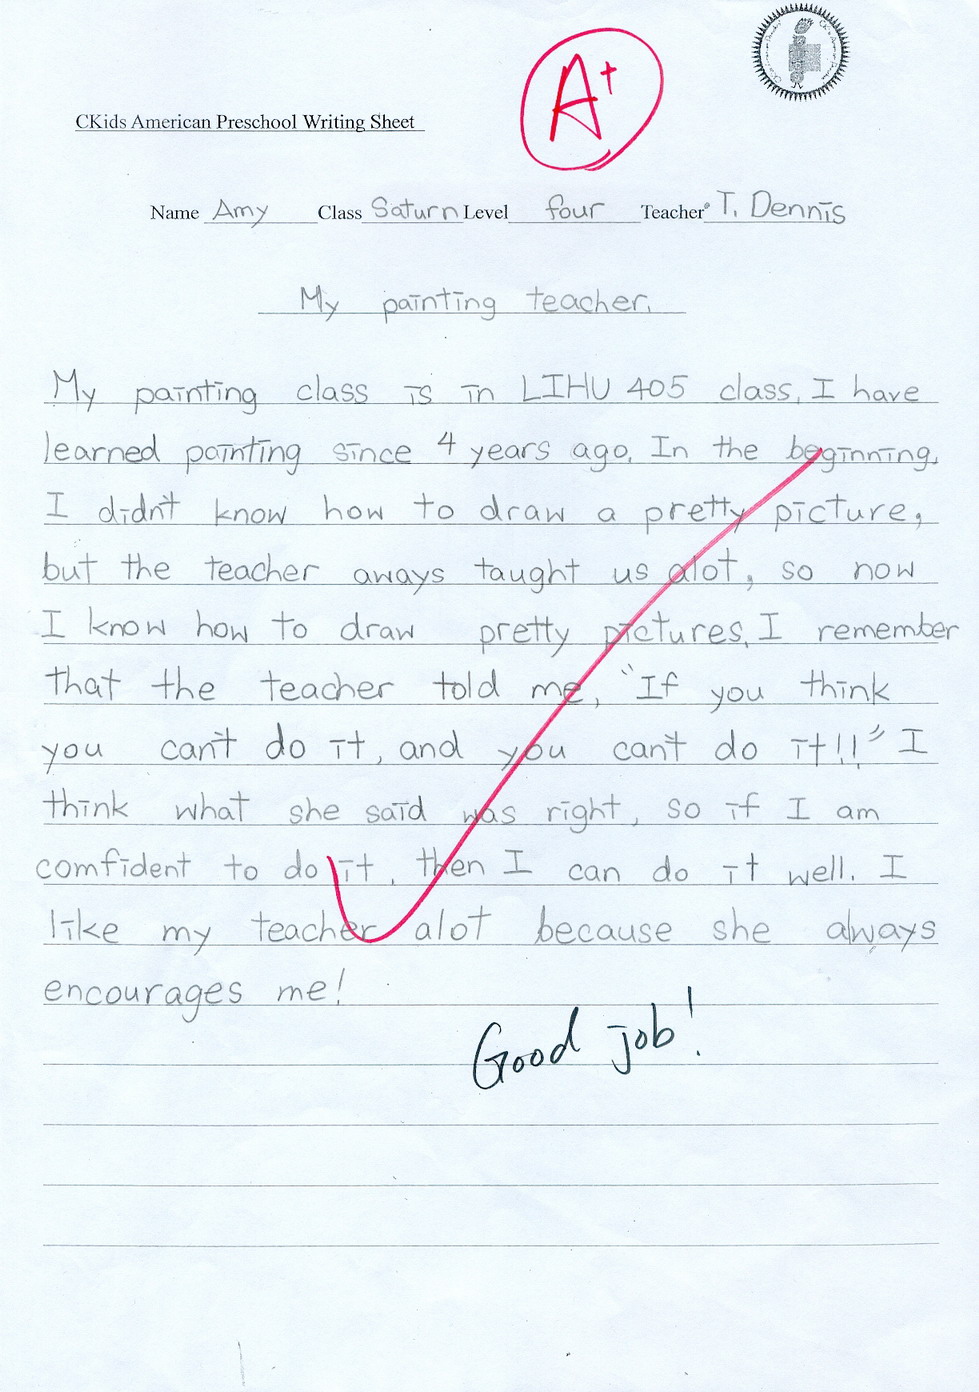 A+
CKids American Preschool Writing Sheet
Name Amy Class Saturn Level four Teacher T. Dennis
My painting teacher.
My painting class is in LIHU 405 class. I have
learned painting since 4 years ago. In the beginning,
I didn't know how to draw a pretty picture,
but the teacher aways taught us alot, so now
I know how to draw pretty pictures. I remember
that the teacher told me, "If you think
you can't do it, and you can't do it!!" I
think what she said was right, so if I am
comfident to do it, then I can do it well. I
like my teacher alot because she always
encourages me!
Good job!